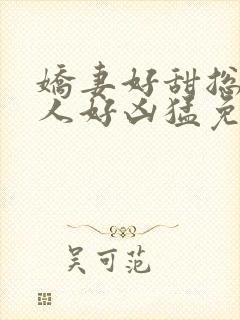 娇妻好甜总
人好凶猛免
吴可范